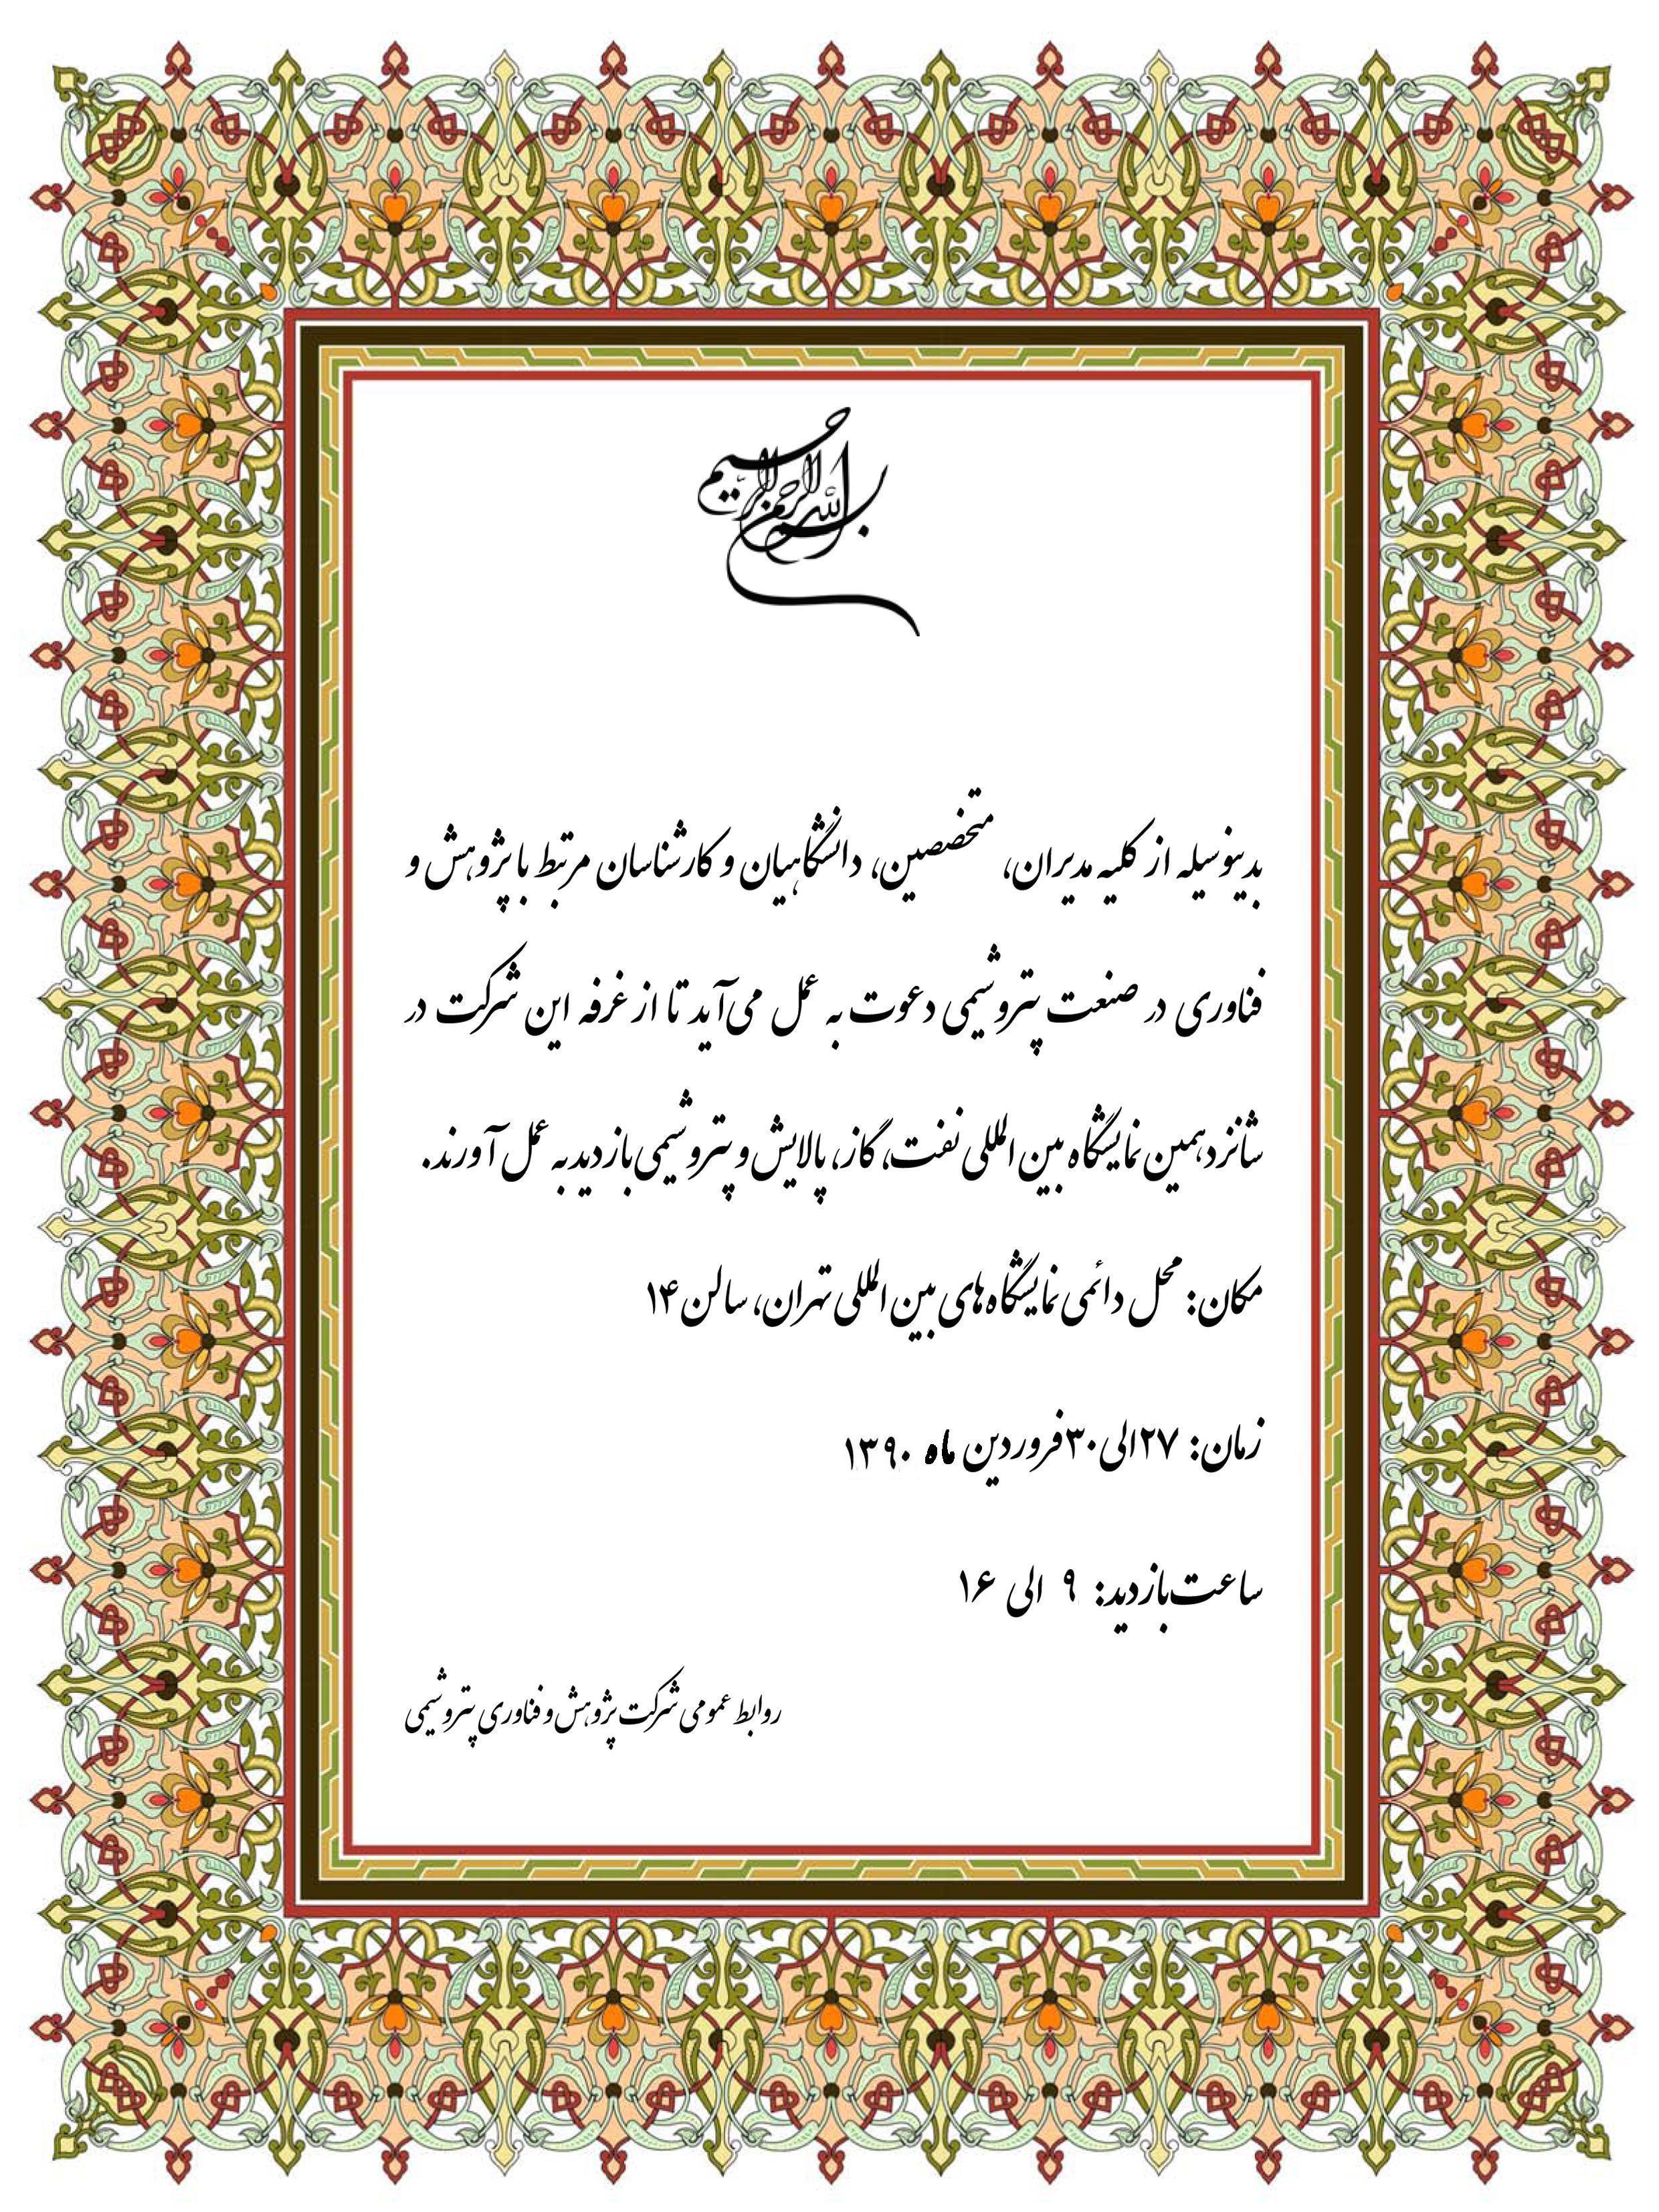 بسم الله الرحمن الرحیم
بدینوسیله از کلیه مدیران، متخصصین، دانشگاهیان و کارشناسان مرتبط با پژوهش و
فناوری در صنعت پتروشیمی دعوت به عمل می‌آید تا از غرفه این شرکت در
شانزدهمین نمایشگاه بین المللی نفت، گاز، پالایش و پتروشیمی بازدید به عمل آورند.
مکان: محل دائمی نمایشگاه‌های بین المللی تهران، سالن ۱۴
زمان: ۲۷ الی ۳۰ فروردین ماه ۱۳۹۰
ساعت بازدید: ۹ الی ۱۶
روابط عمومی شرکت پژوهش و فناوری پتروشیمی